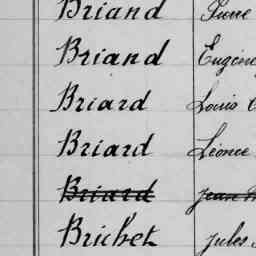 Briand Pierre
Briand Eugène
Briard Louis
Briard Léonce
Briard Jean
Brichet Jules